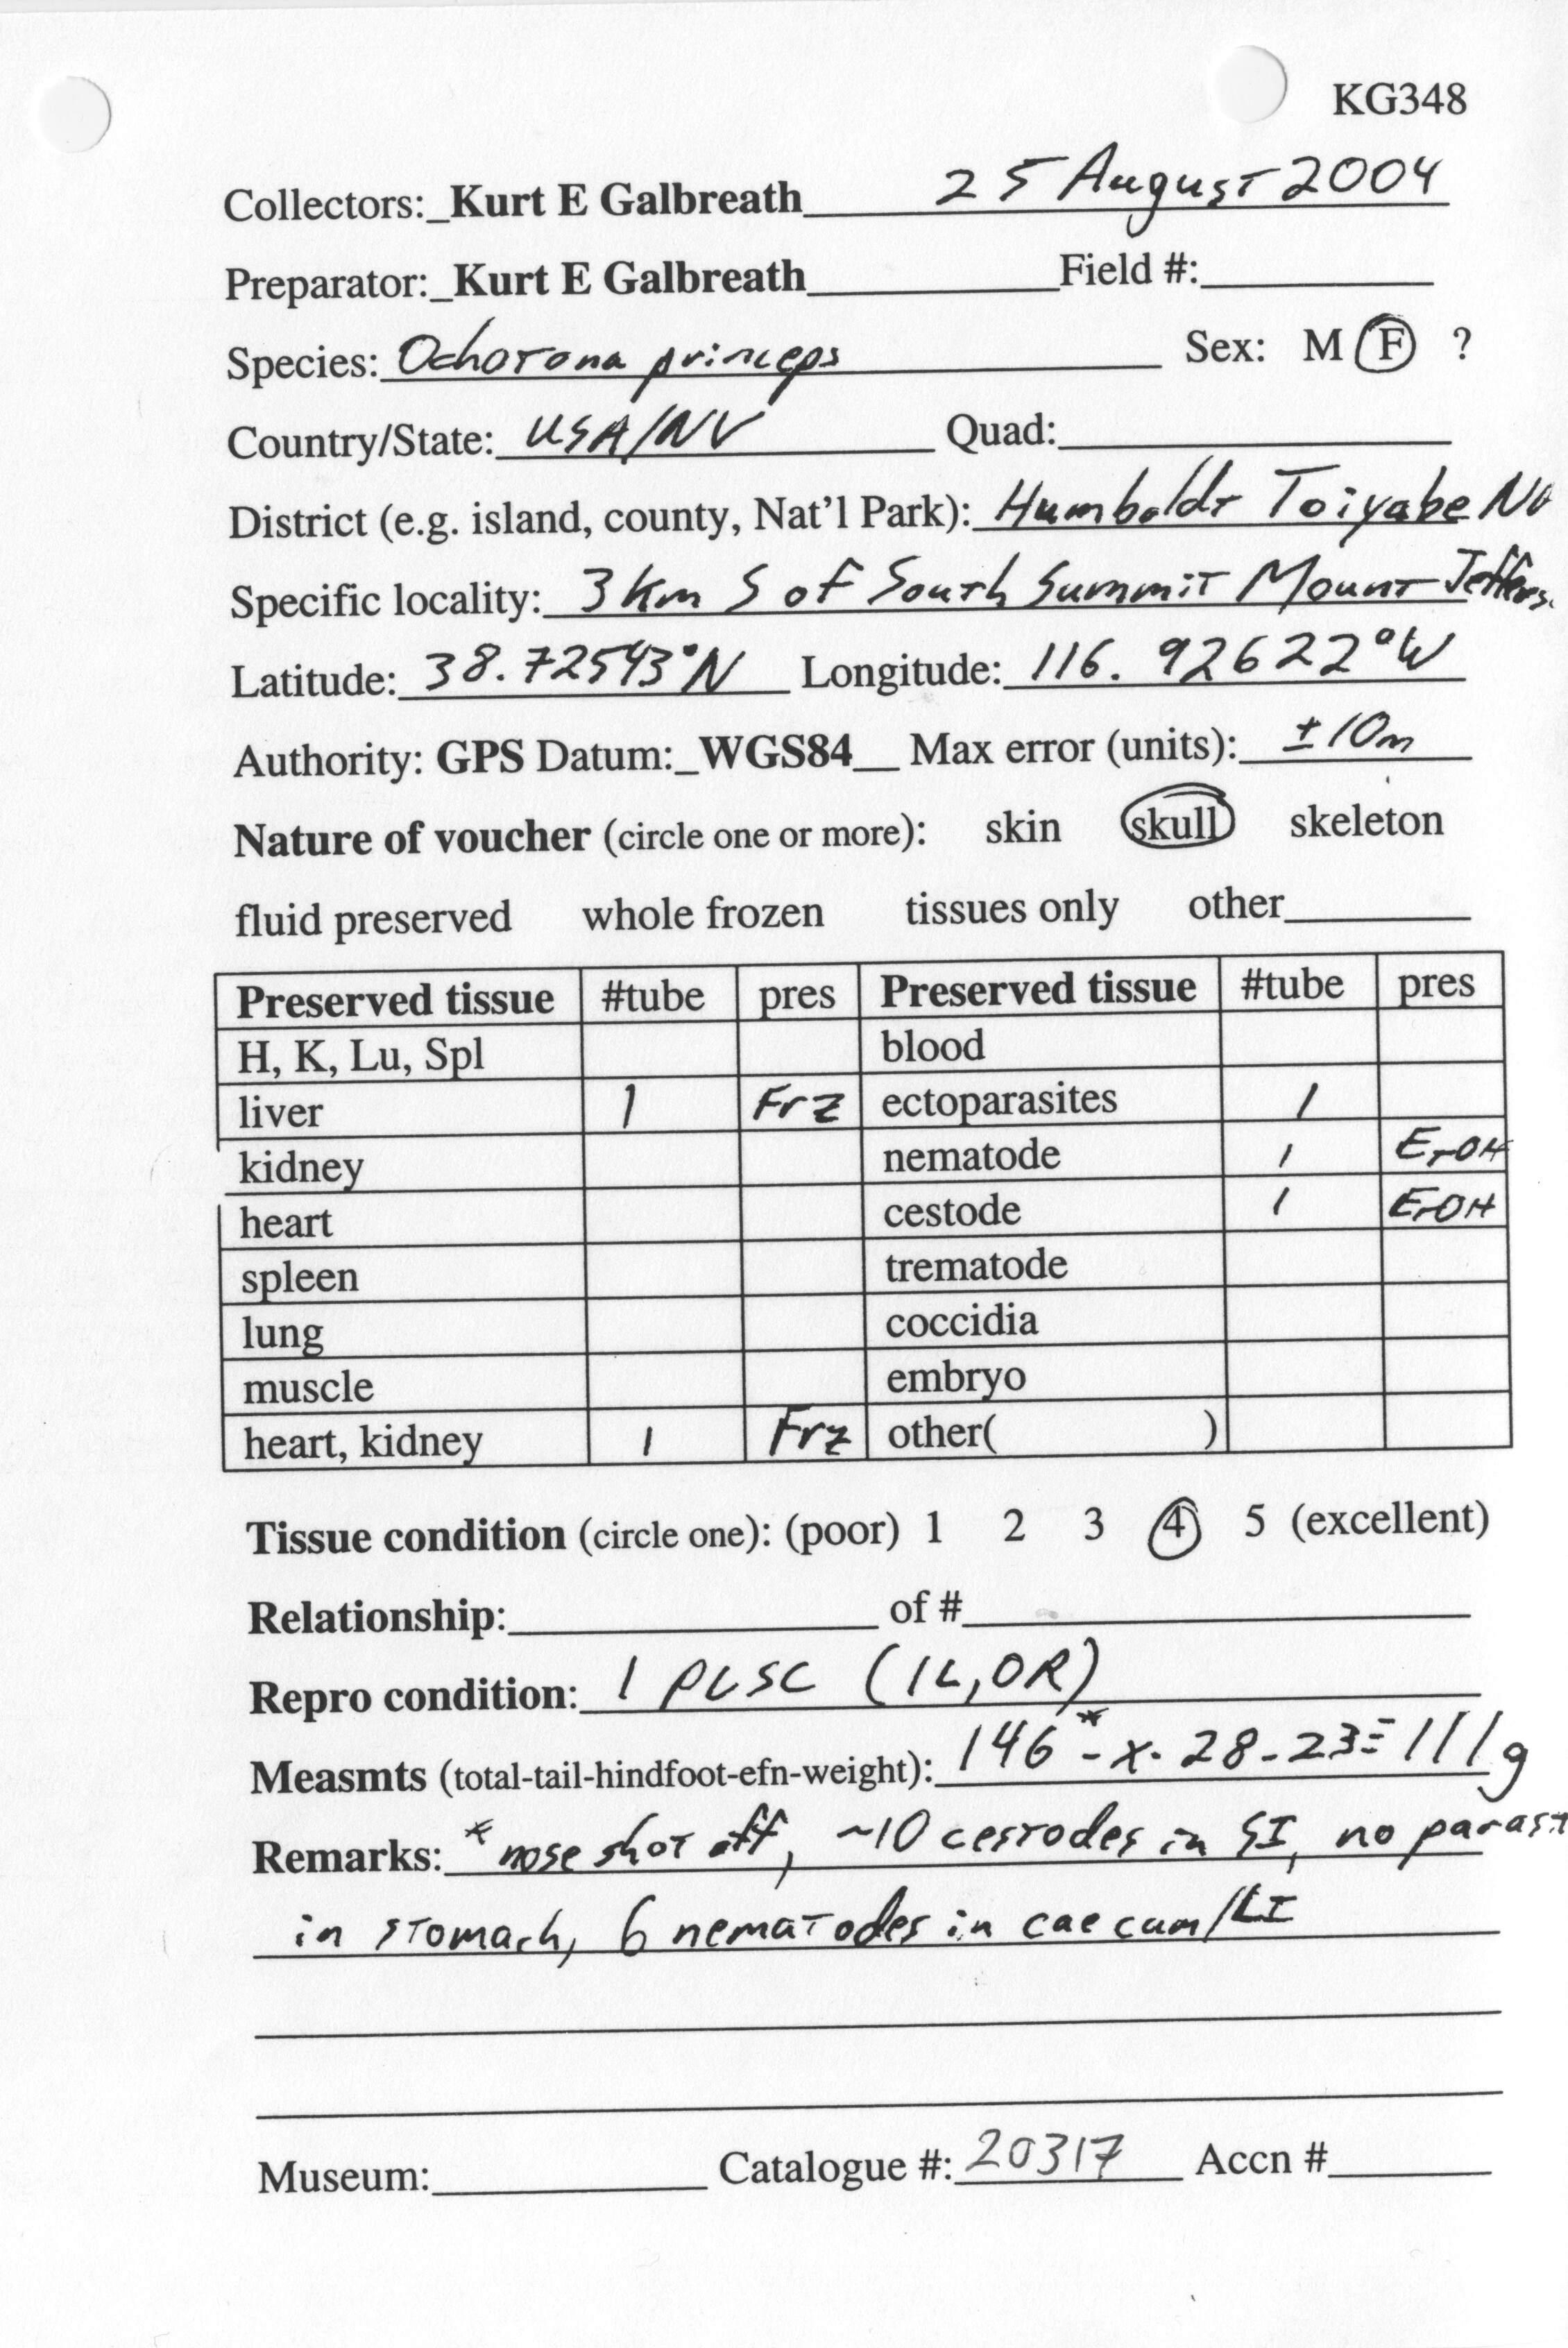 KG348
Collectors:_Kurt E Galbreath 25 August 2004
Preparator:_Kurt E Galbreath Field #:
Species: Ochotona princeps Sex: M F ?
Country/State: USA/NV Quad:
District (e.g. island, county, Nat'l Park): Humboldt Toiyabe
Specific locality: 3 km S of South Summit Mount Jeffers
Latitude: 38.72543°N Longitude: 116.92622°W
Authority: GPS Datum:_WGS84_ Max error (units): ±10m
Nature of voucher (circle one or more): skin skull skeleton
fluid preserved whole frozen tissues only other
Preserved tissue #tube pres Preserved tissue #tube pres
H, K, Lu, Spl blood
liver 1 Frz ectoparasites 1
kidney nematode 1 EtOH
heart cestode 1 EtOH
spleen trematode
lung coccidia
muscle embryo
heart, kidney 1 Frz other( )
Tissue condition (circle one): (poor) 1 2 3 4 5 (excellent)
Relationship: of #
Repro condition: 1 plsc (1L, 0R)
Measmts (total-tail-hindfoot-efn-weight): 146*-x-28-23≡111g
Remarks: *nose shot off, ~10 cestodes in SI, no parasit
in stomach, 6 nematodes in caecum/LI
Museum: Catalogue #: 20317 Accn #